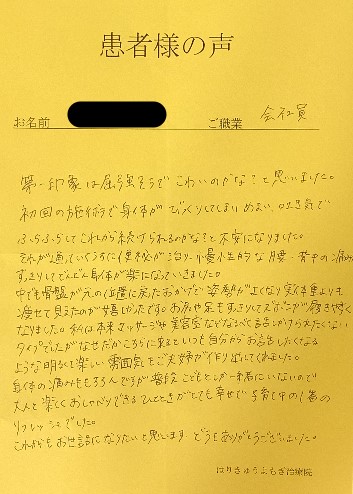 患者様の声
お名前
ご職業 会社員
第一印象は屈強そうでこわいのかな？と思いました。
初回の施術で身体がびっくりしてしまいめまい、吐き気で
ふらふらしてこれから続けられるのかな？と不安になりました。
それが通っていくうちに便秘が治り、慢性的な腰、背中の痛み
すっきりしてどんどん身体が楽になっていきました。
中でも骨盤が元の位置に戻ったおかげで姿勢が良くなり実体重よりも
痩せて見えたのが嬉しかったです。お尻や足もすっきりしてズボンが履きやすく
なりました。私は本来マッサージや美容室などなるべく話しかけられたくない
タイプでしたがなぜだかこちらに来るといつも自分からお話したくなる
ような明るく楽しい雰囲気をご夫婦が作り出してくれました。
身体の痛みももちろんですが普段こどもとしか一緒にいないので
大人と楽しくおしゃべりできるひとときがとても幸せで子育て中の1番の
リフレッシュでした。
これからもお世話になりたいと思います。どうもありがとうございました。
はりきゅうよもぎ治療院